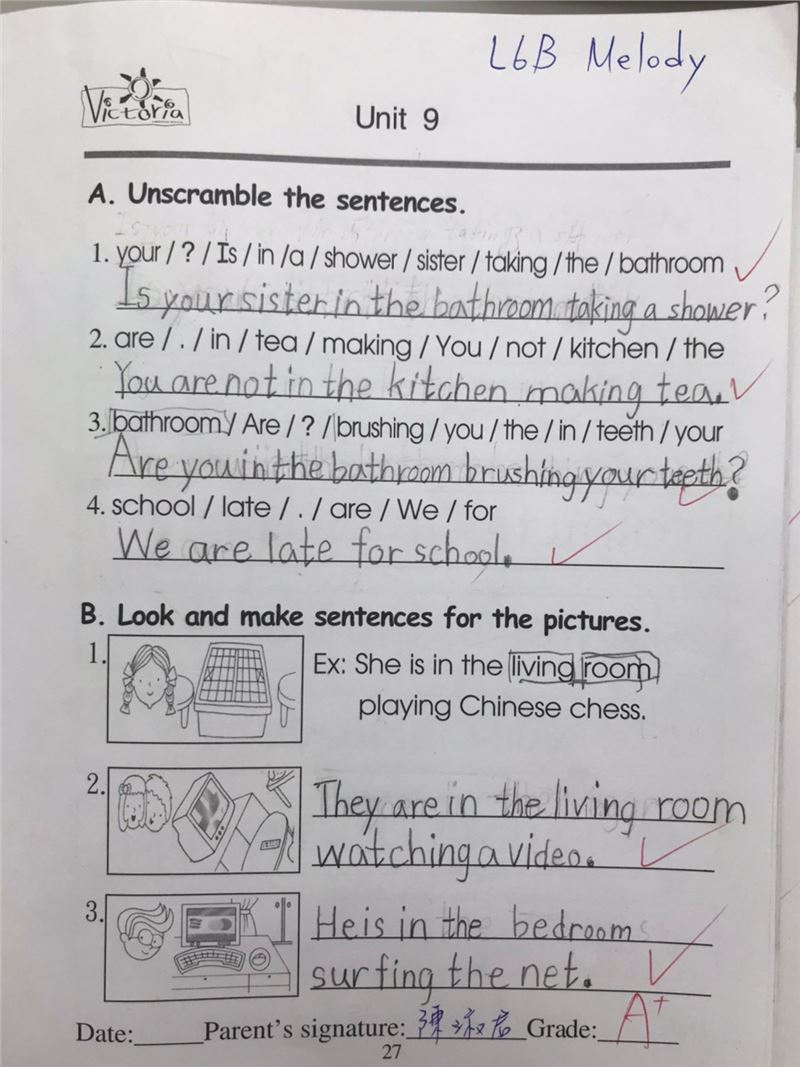 L6B Melody
Victoria
Unit 9
A. Unscramble the sentences.
1. your / ? / Is / in /a / shower / sister / taking / the / bathroom
Is your sister in the bathroom taking a shower?
2. are / . / in / tea / making / You / not / kitchen / the
You are not in the kitchen making tea.
3. bathroom / Are / ? / brushing / you / the / in / teeth / your
Are you in the bathroom brushing your teeth?
4. school / late / . / are / We / for
We are late for school.
B. Look and make sentences for the pictures.
1. Ex: She is in the living room
playing Chinese chess.
2. They are in the living room
watching a video.
3. He is in the bedroom
surfing the net.
Date: Parent's signature: 陳淑君 Grade: A+
27